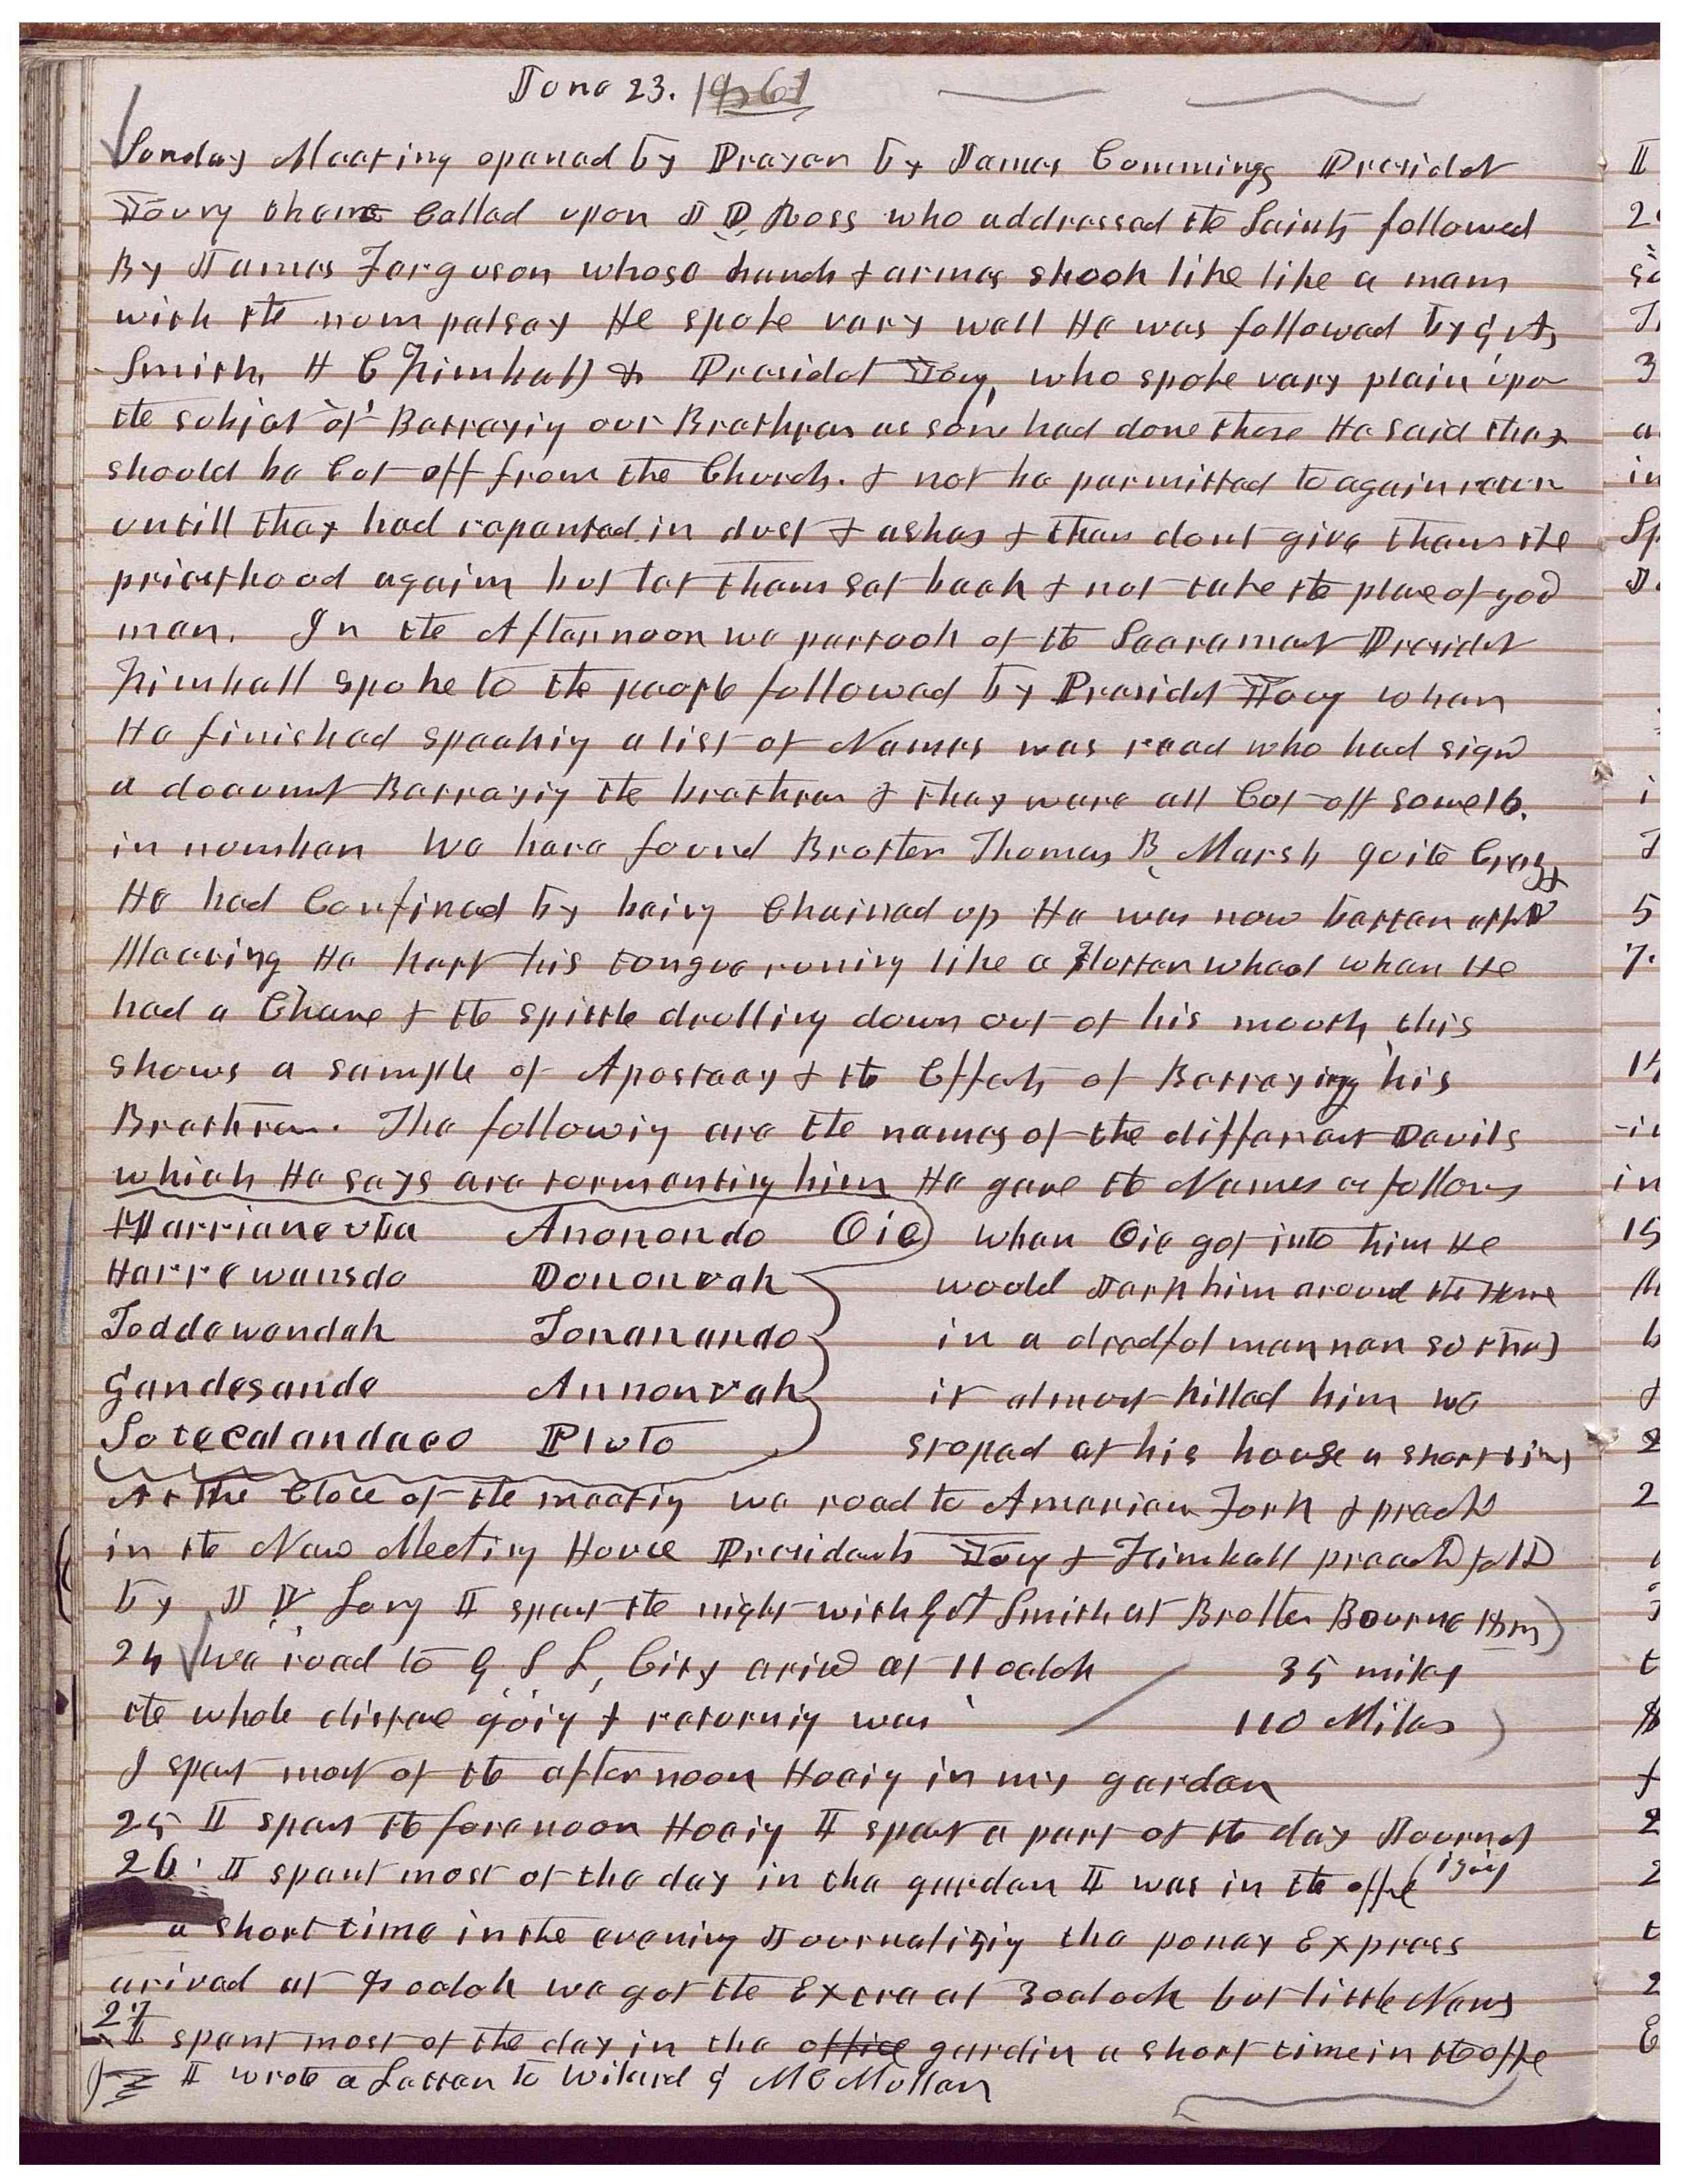 June 23. 1861
Sunday Meeting opened by Prayer by James Cummings Presidet
Young then Called upon J D Ross who addressed the Saints followed
By James Ferguson whose hands & armes shook like like a man
with the num palsey He spoke vary well He was followed by G A
Smith, H C Kimball & Presidet Young, who spoke vary plain upon
the subjet of Betraying our Brethren as some had done there He said they
should be Cut off from the Church. & not be permitted to again return
untill they had repented in dust & ashes & then dont give them the
priesthood again but let them set back & not take the place of good
men. In the Afternoon we partook of the Sacrament Presidet
Kimball spoke to the people followed by Presidet Young when
He finished speaking a list of Names was read who had signd
a document Betraying the brethren & they ware all Cut off some 16.
in number We here found Brother Thomas B. Marsh quite Crazy
He had Confined by being Chained up He was now better attd
Meeting He kept his tongue runing like a flutter wheel when He
had a Chance & the spittle drolling down out of his mouth, this
shows a sample of Apostacy & the Effects of Betraying his
Brethren. The following are the names of the different Devils
which He says are tormenting him He gave the Names as follows
Harrianeuba Anonondo Oie when Oie got into him He
Harrewansdo Dononvah would Jerk him around the House
Toddewondah Tonanando in a dredful manner so that
Gandesande Annonvah it almost killed him we
Sotecalandaeo Pluto stoped at his house a short time
At the Close of the meeting we road to American Fork & preachd
in the New Meeting House Presidents Young & Kimball preachd folld
by J V Long I spent the night with G A Smith at Brother Bourne Hom
24 We road to G. S. L. City arivd at 11 oclok 35 miles
the whole distance going & returning was 110 Miles
I spent most of the afternoon Hoeing in my garden
25 I spent the forenoon Hoeing I spent a part of the day Journal
izing
26. I spent most of the day in the garden I was in the offce
a short time in the evening Journalizing the poney Express
arived at oclok we got the Extra at 3 oclock but little News
27 I spent most of the day in the office gardin a short time in the offce
I wrote a Letter to Wilard G McMullen